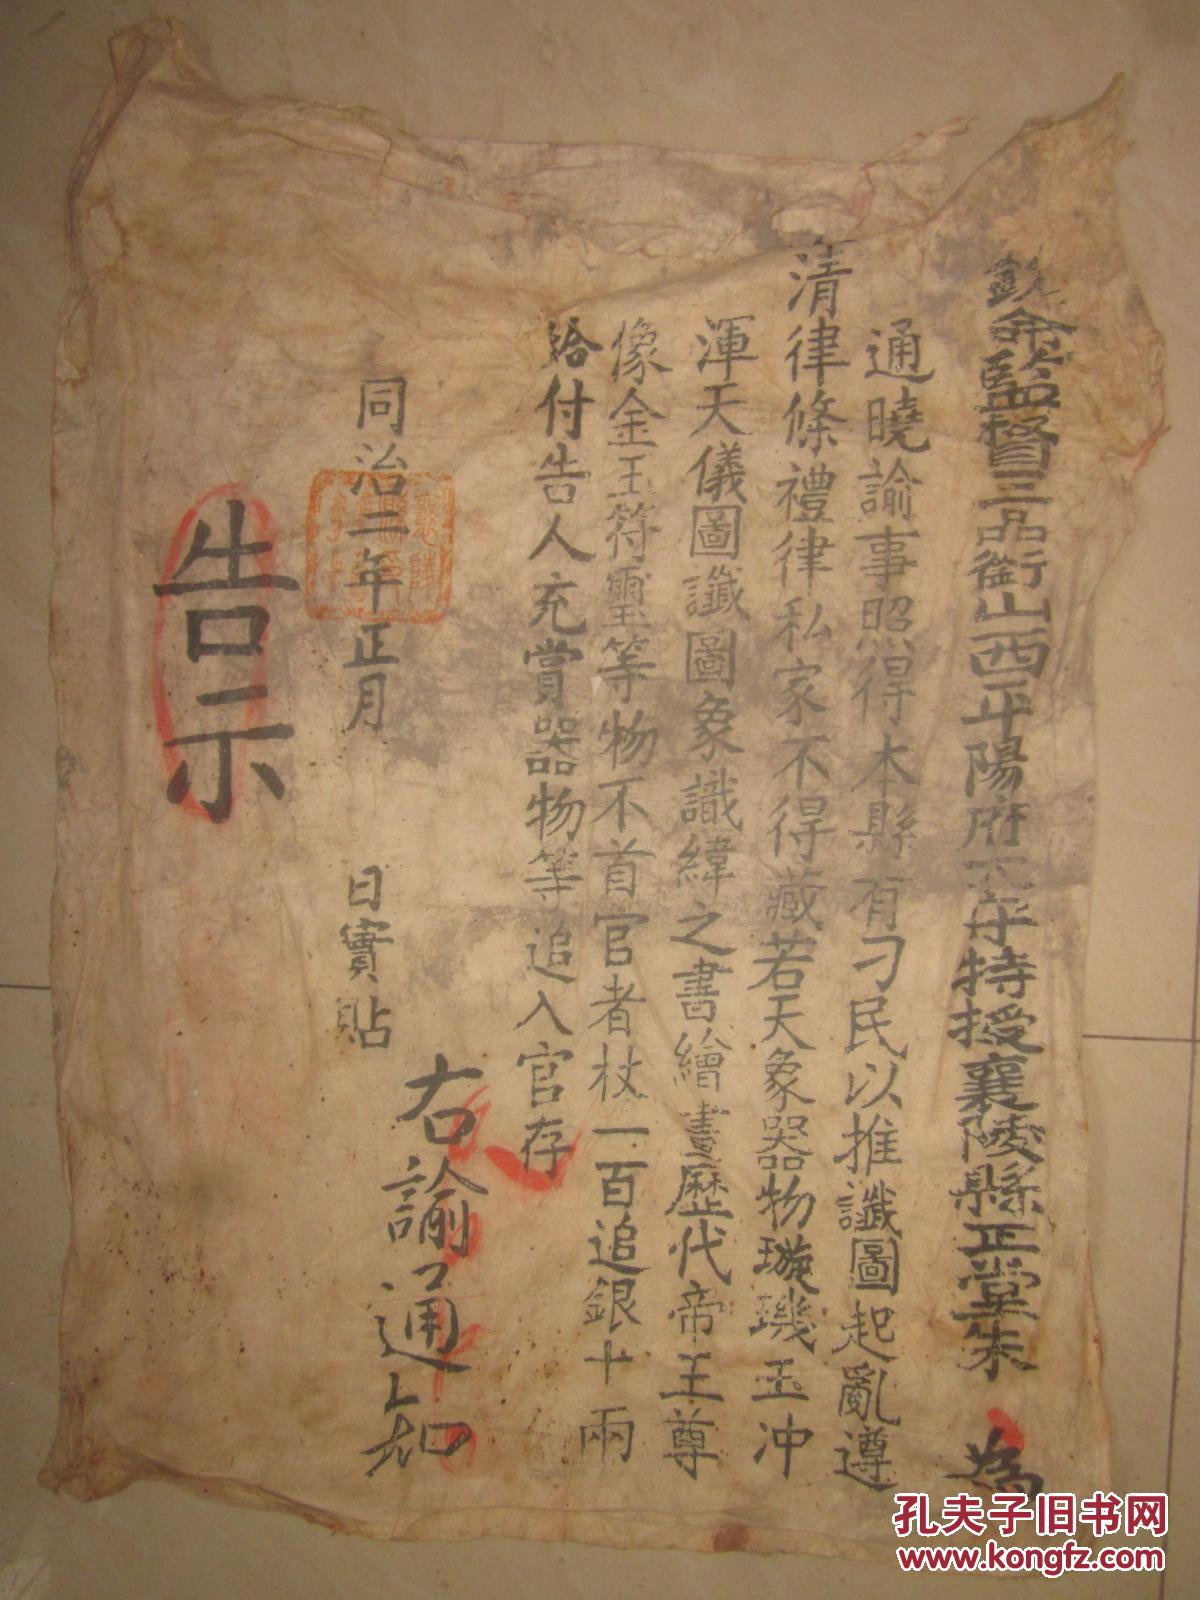 欽命監督三品銜山西平陽府正堂特授襄陵縣正堂朱 為
通曉諭事照得本縣有刁民以推讖圖起亂遵
清律條禮律私家不得藏若天象器物璇璣玉冲
渾天儀圖讖圖象識緯之書繪畫歷代帝王尊
像金玉符璽等物不首官者杖一百追銀十兩
給付告人充賞器物等追入官存
右諭通知
同治二年正月 日實貼
告示
孔夫子旧书网
www.kongfz.com